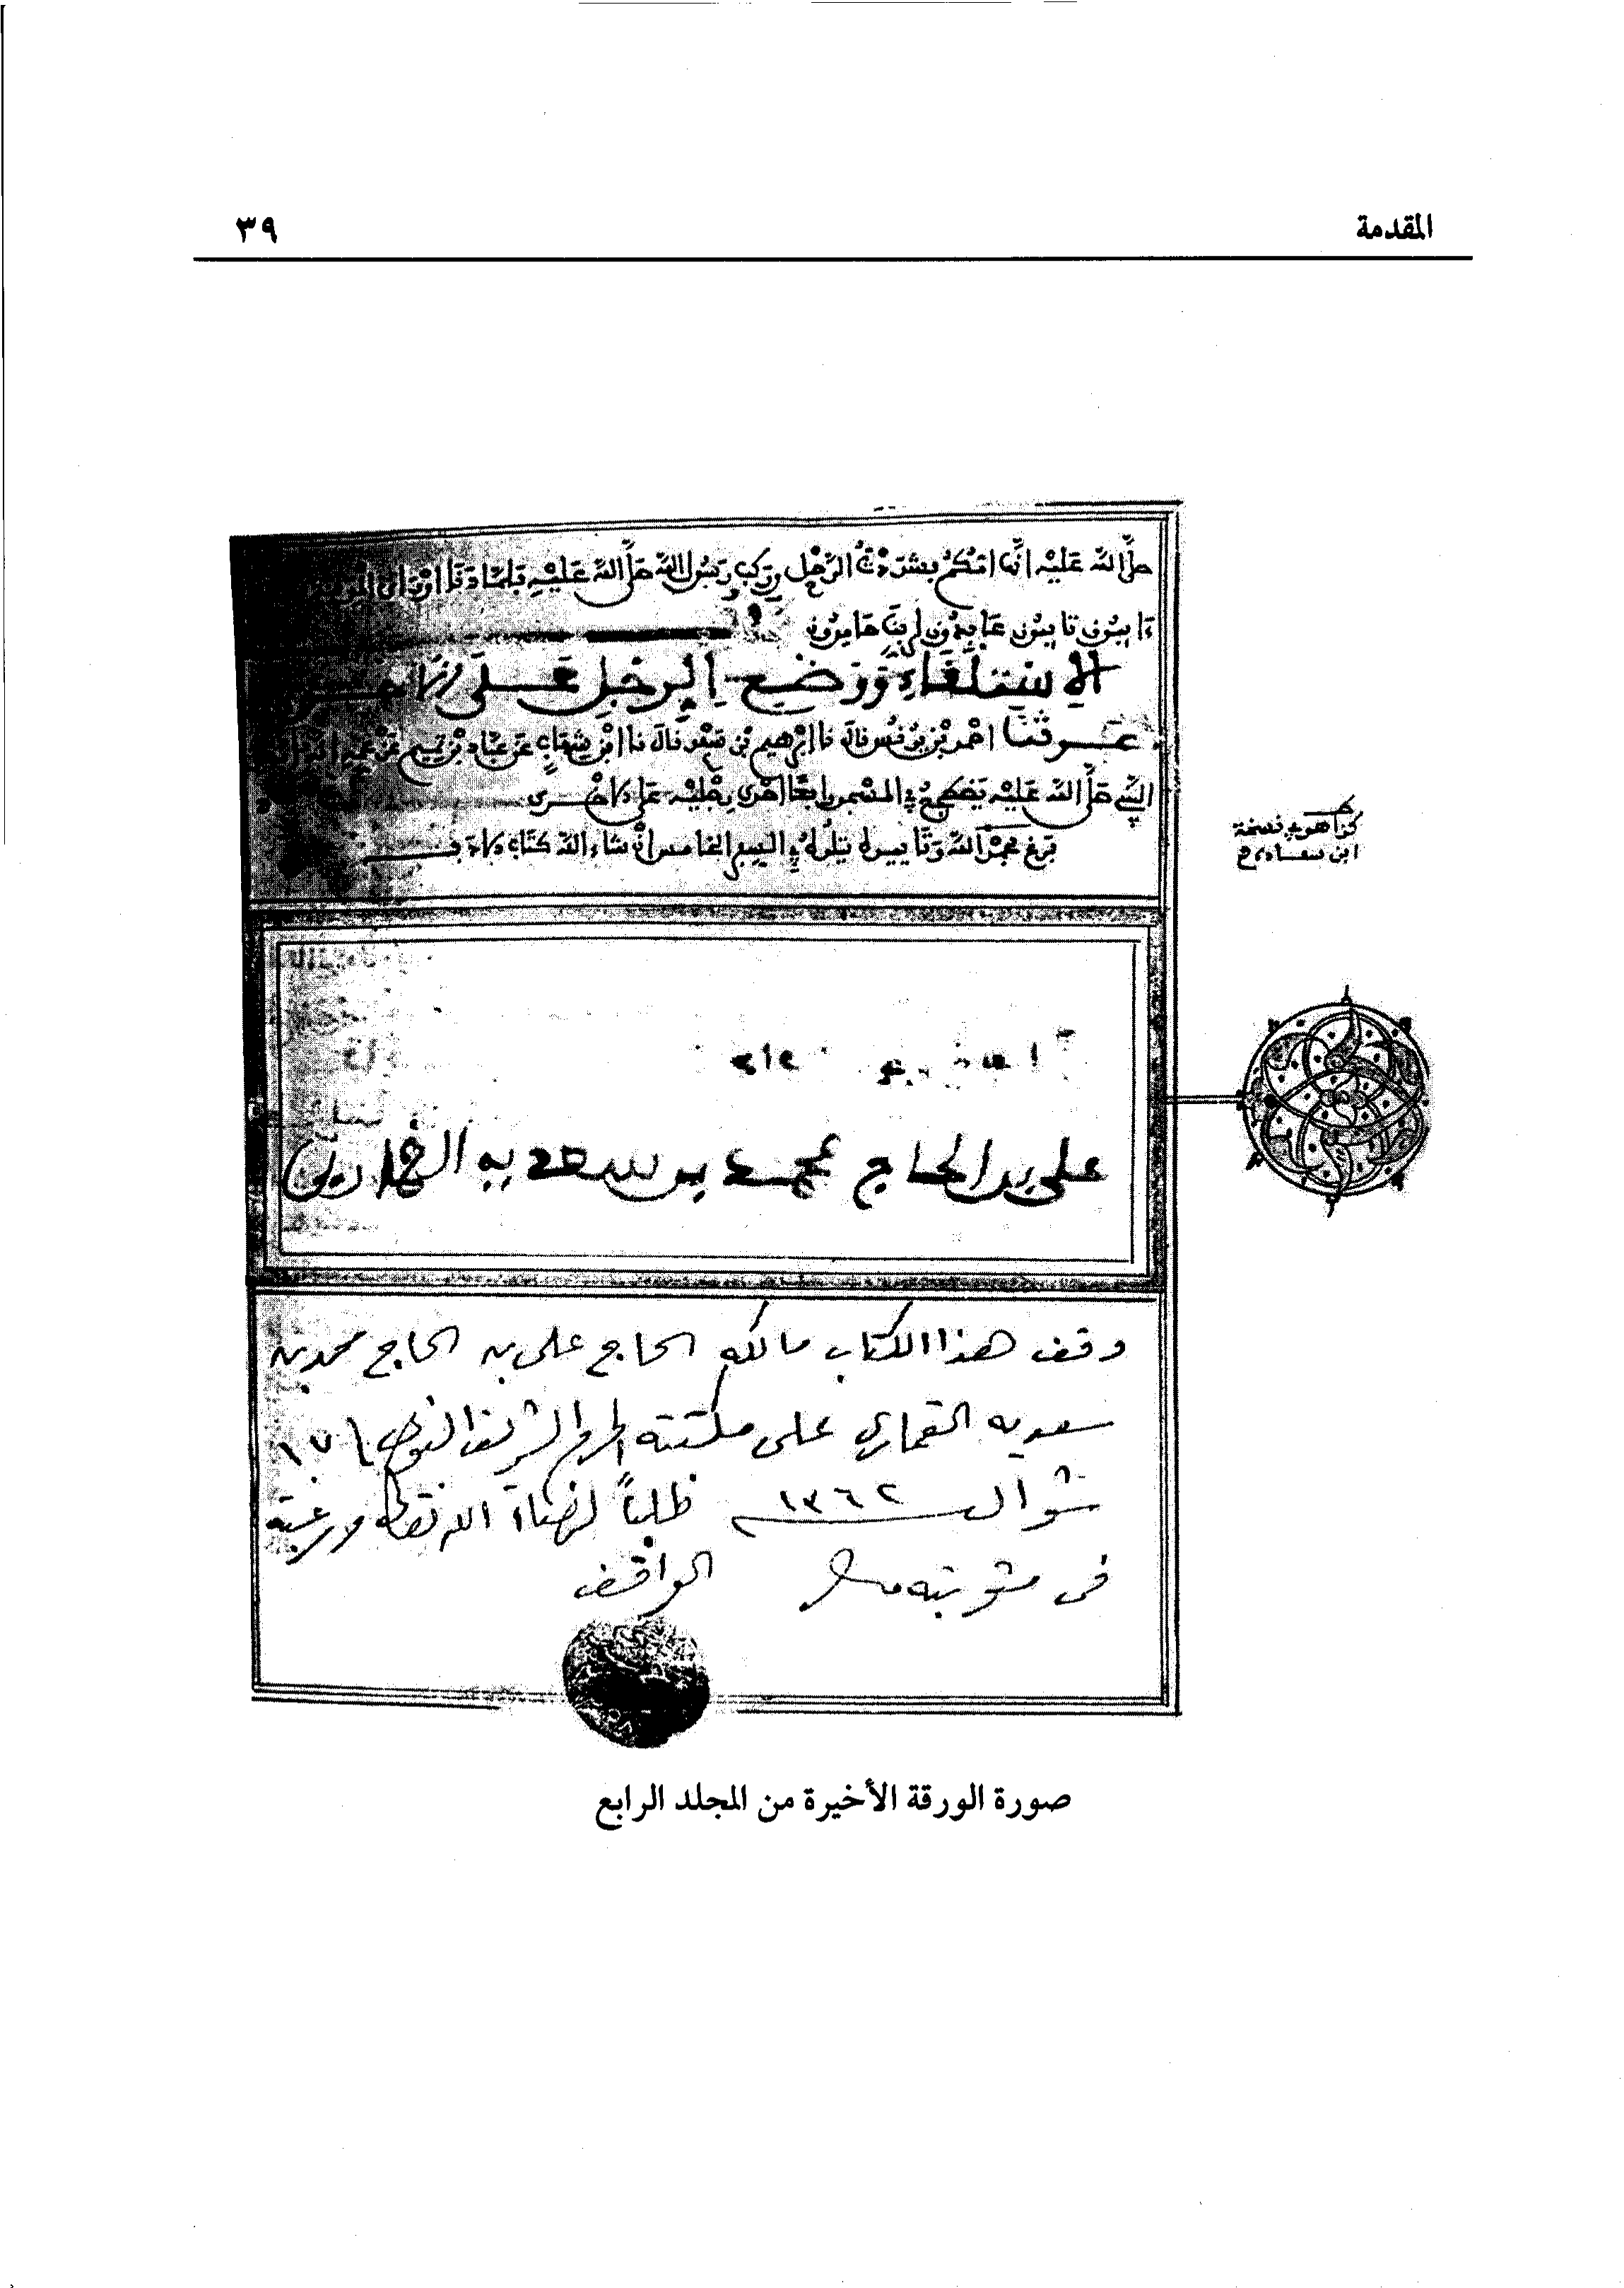 المقدمة
٣٩
صلى الله عليه إنها امكم فشددت الرحل وركب رسول الله صلى الله عليه فلما دنا او راى
ءايبون تايبون عابدون لربنا حامدون
الاستلقاء ووضع الرجل على
حدثنا احمد بن يونس قال نا ابراهيم بن سعد قال نا ابن شهاب عن عباد بن تميم عن عمه
النبي صلى الله عليه يضطجع في المسجد رافعا احدى رجليه على الاخرى
بحمد الله وتاييده يتلوه في السفر الخامس ان شاء الله كتاب الادب
كذا هو في نسخة
ابن سعادة
علي بن الحاج محمد بن سعديه
وقف هذا الكتاب مالكه الحاج على بن الحاج محمد بن
سعديه القماري على مكتبة الحرم الشريف النبوي ١٧
شوال ١٣٦٢ طلباً لمرضاة الله تعالى ورغبة
فى مثوبته
الواقف
صورة الورقة الأخيرة من المجلد الرابع